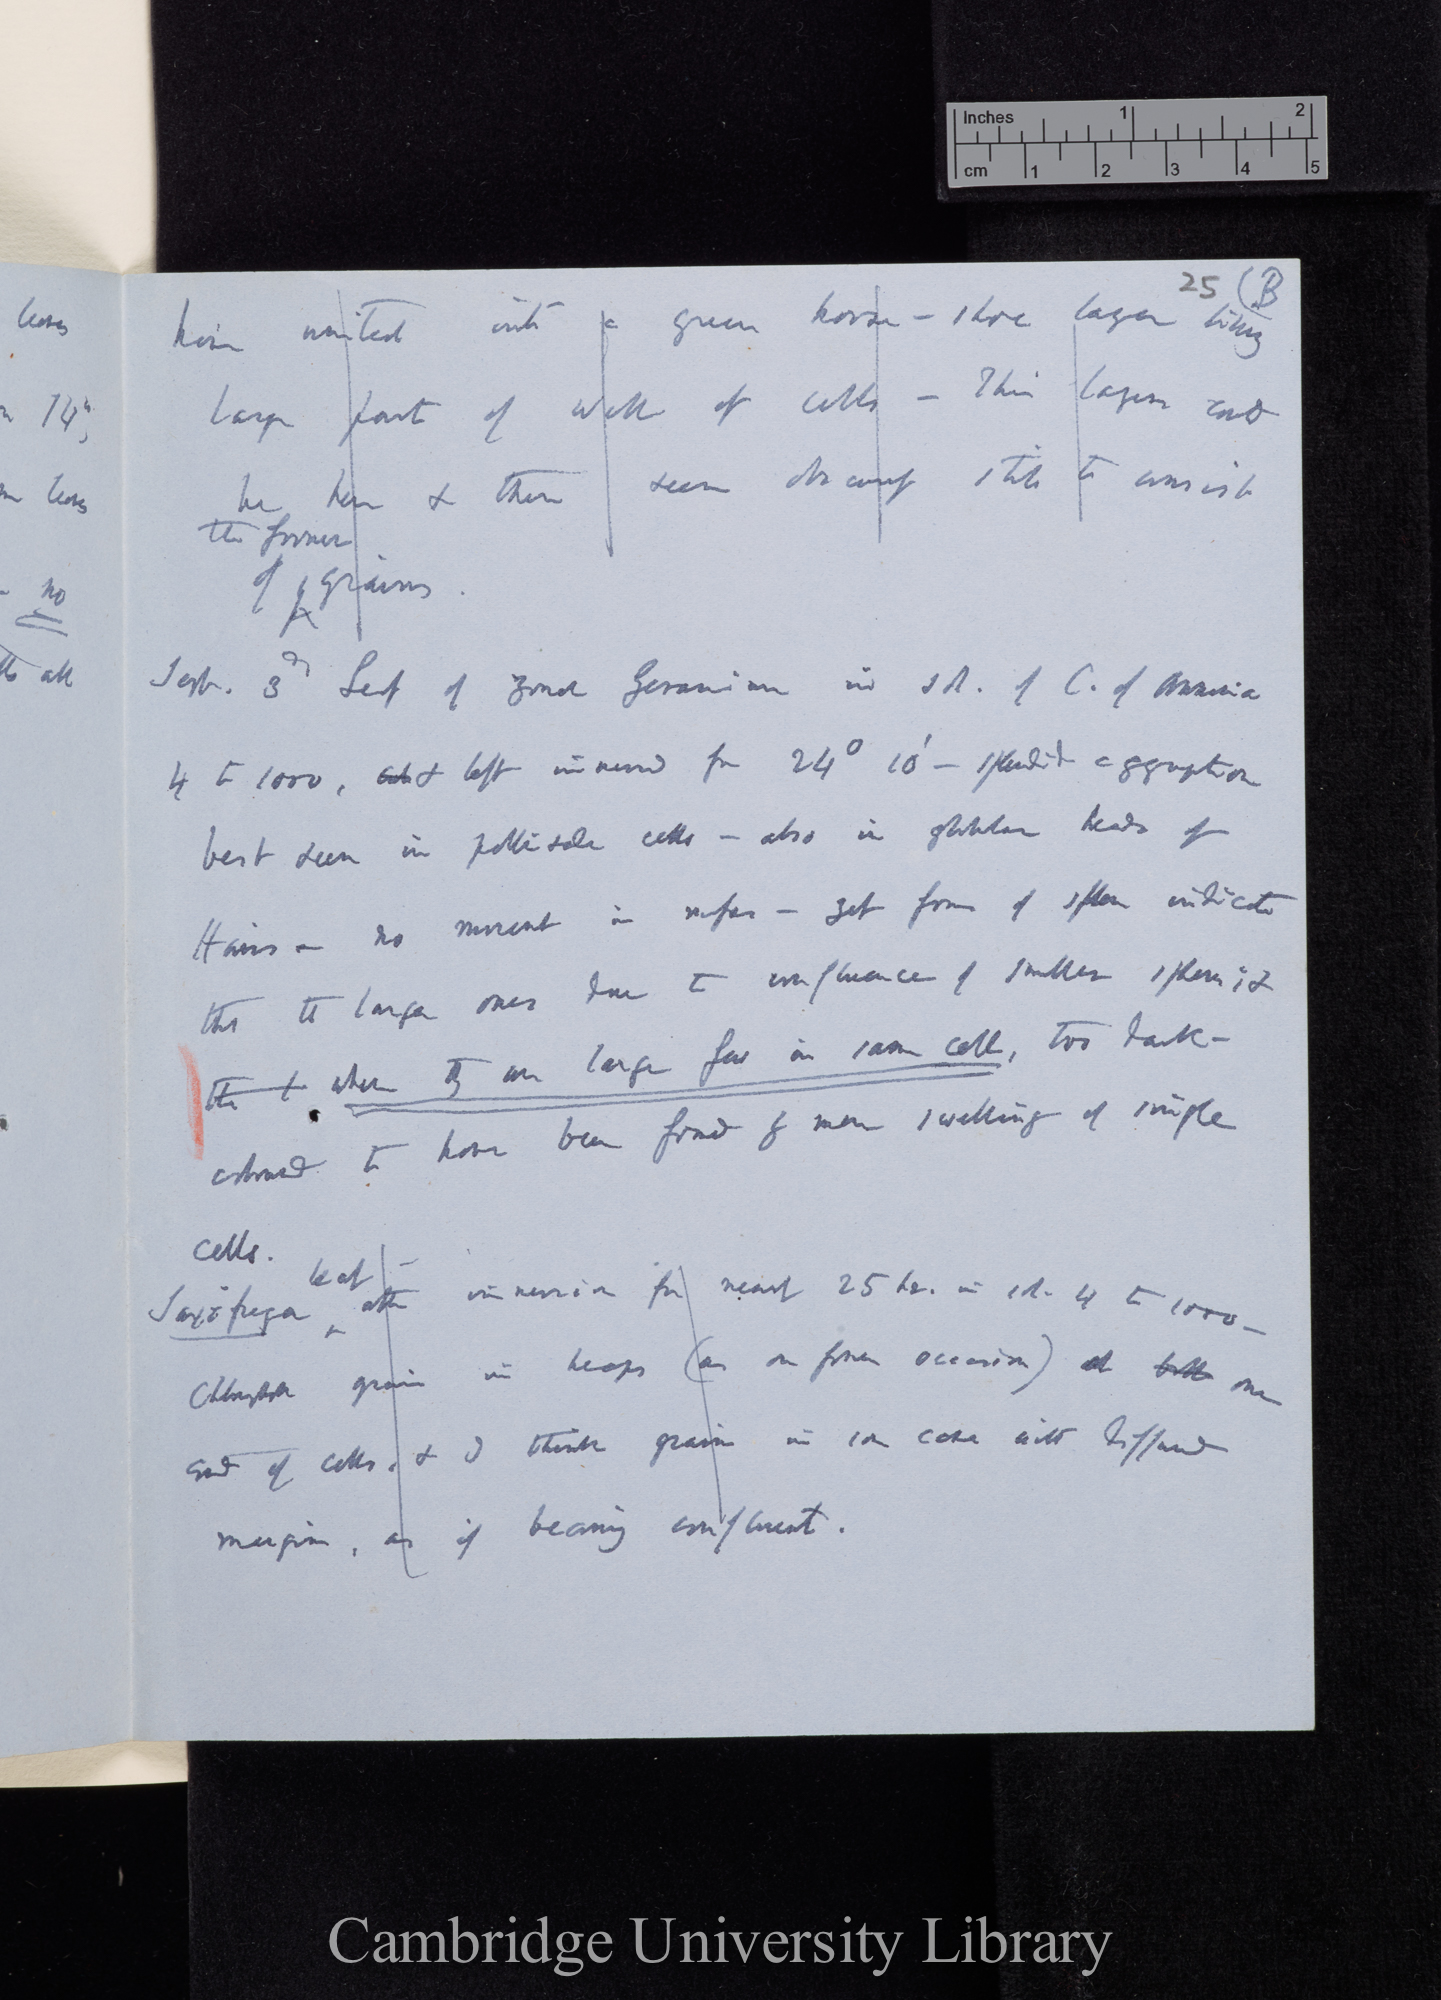 Inches 1 2
cm 1 2 3 4 5
25 (B
leaves
14";
leaves
no
all
having united into a green horse-shoe layer lining
large part of wall of cells — This layer could
be here & there seen obscurely still to consist
the former
of grains.
Sept. 3d Leaf of zonal Geranium in sol. of C. of Ammonia
4 to 1000, & left immersed for 24° 10' — splendid aggregation
best seen in pallisade cells — also in globular heads of
Hairs — no movement in masses — yet form of spheres indicate
that the larger ones due to confluence of smaller spheres; &
the & when they are large few in same cell, too dark-
coloured to have been formed by mere swelling of single
cells.
leaf
Saxifraga after immersion for nearly 25 hr. in sol. 4 to 1000 —
Chlorophyll grains in heaps (as on former occasion) at both one
end of cells, & I think grains in some cases with diffused
margin, as if becoming confluent.
Cambridge University Library